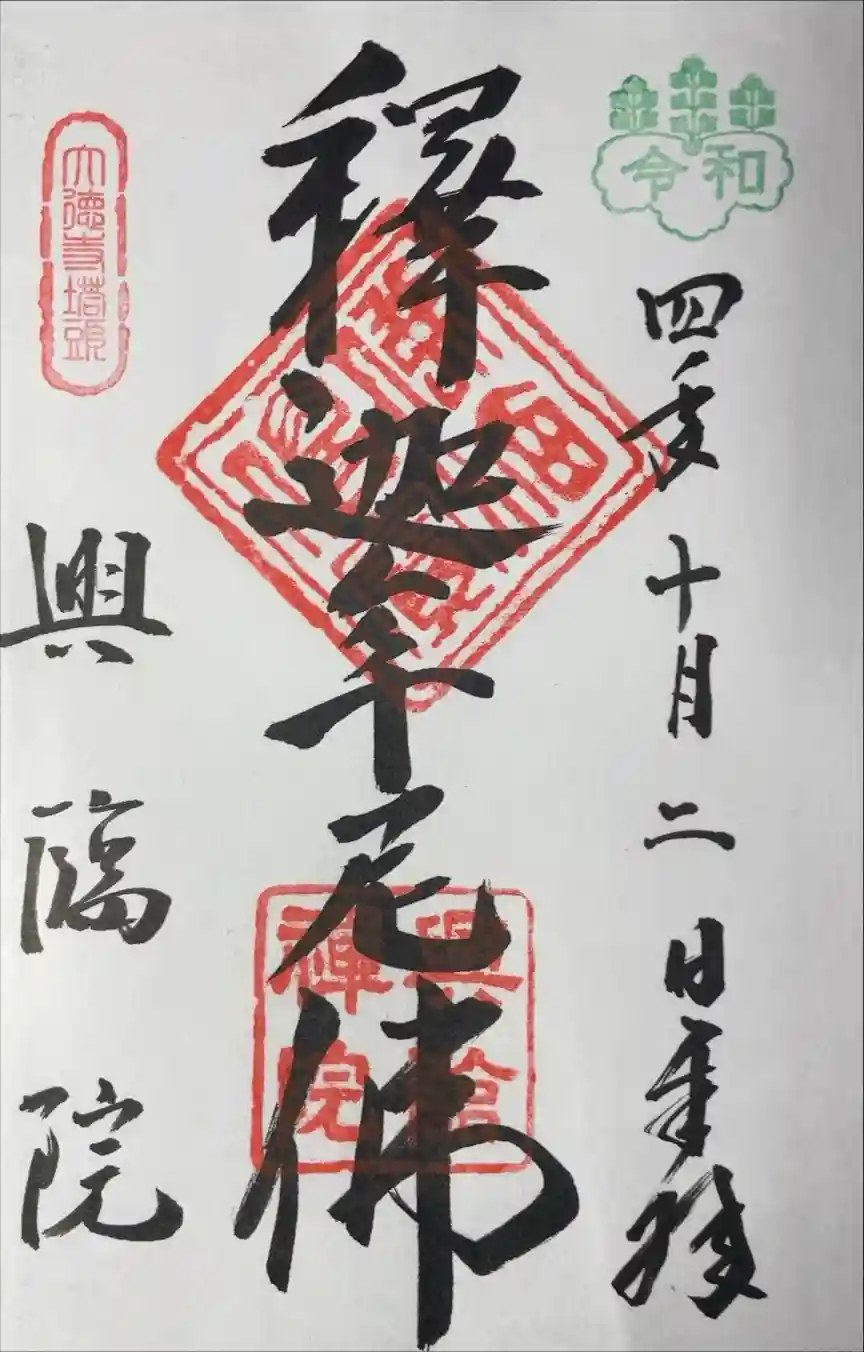 令和
四年十月二日奉拝
釋迦牟尼佛
大徳寺塔頭
興臨院